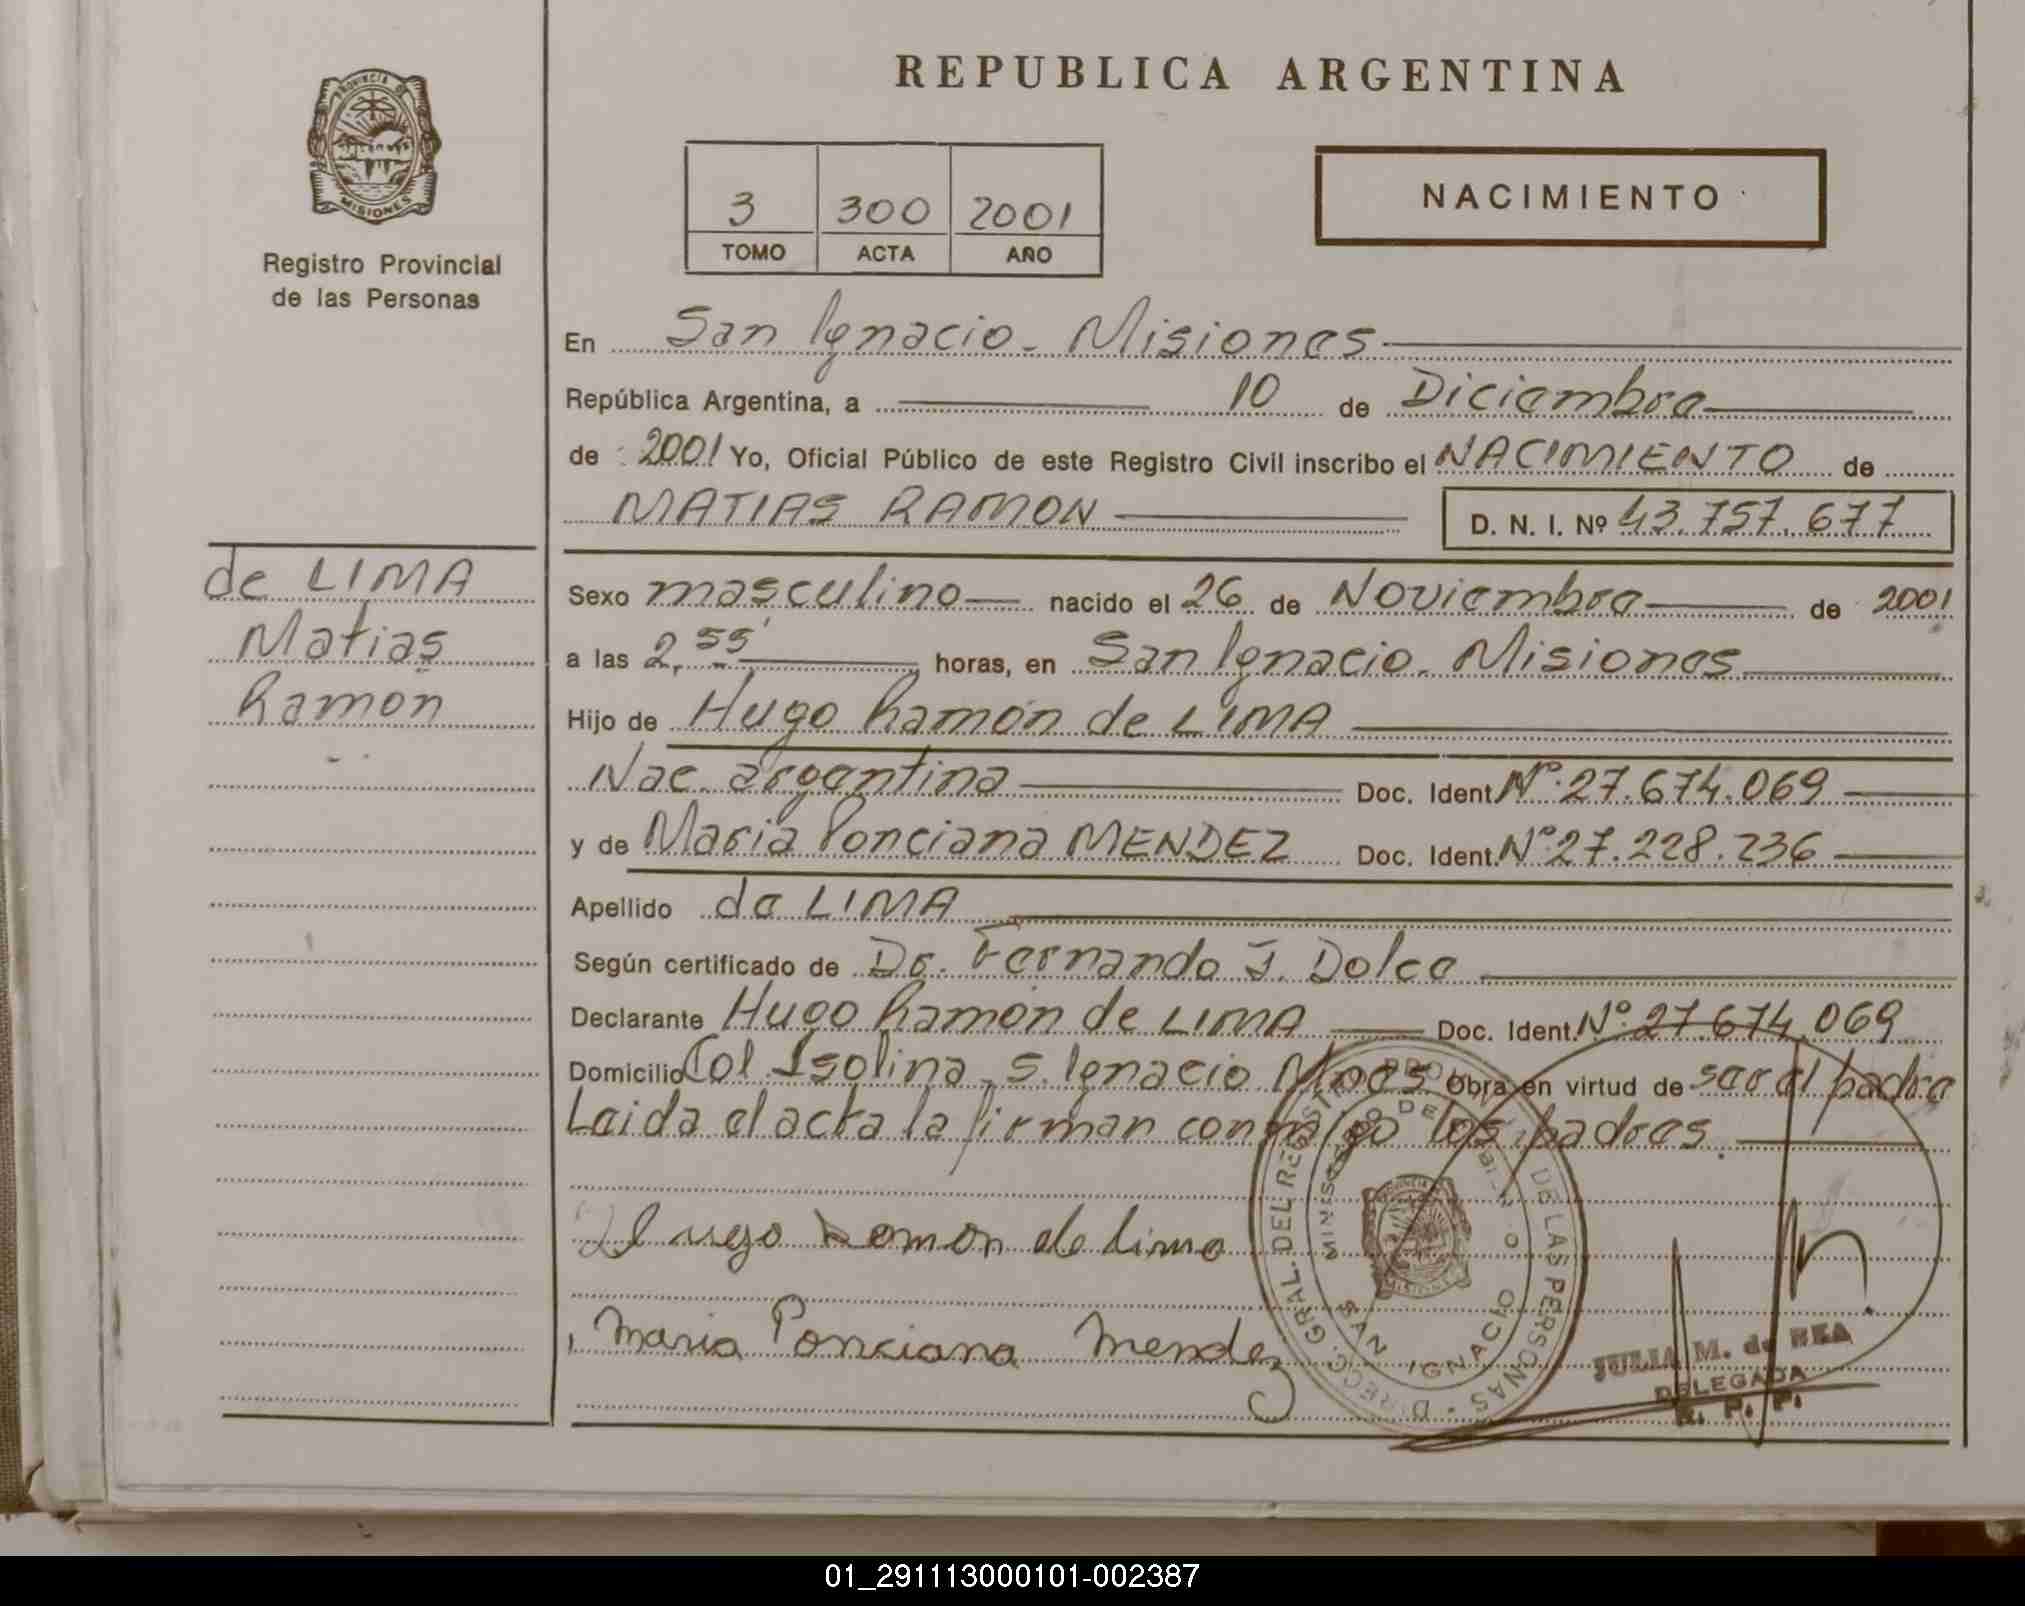 REPUBLICA ARGENTINA
PROVINCIA DE
MISIONES
Registro Provincial
de las Personas
3 300 2001
TOMO ACTA AÑO
NACIMIENTO
En San Ignacio - Misiones
República Argentina, a 10 de Diciembre
de 2001 Yo, Oficial Público de este Registro Civil inscribo el NACIMIENTO de
MATIAS RAMON D. N. I. Nº 43.757.677
de LIMA
Matias
Ramon
Sexo masculino nacido el 26 de Noviembre de 2001
a las 2,55' horas, en San Ignacio - Misiones
Hijo de Hugo Ramón de LIMA
Nac. argentina Doc. Ident. Nº 27.674.069
y de Maria Ponciana MENDEZ Doc. Ident. Nº 27.228.236
Apellido de LIMA
Según certificado de Dr. Fernando J. Dolce
Declarante Hugo Ramón de LIMA Doc. Ident. Nº 27.674.069
Domicilio Col. Isolina - S. Ignacio Mnes Obra en virtud de ser el padre
Leida el acta la firman conmigo los padres
Hugo Ramon de Lima
Maria Ponciana Mendez
DIRECC. GRAL. DEL REGISTRO DE LAS PERSONAS
MINISTERIO DE
SAN IGNACIO
PROVINCIA DE
MISIONES
JULIA M. de REA
DELEGADA
R. P. P.
01_291113000101-002387